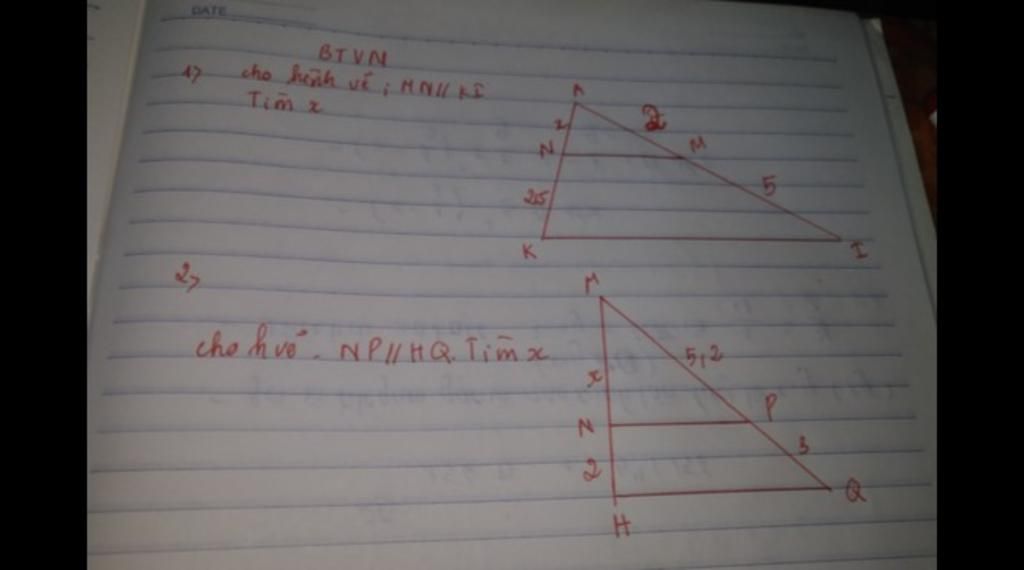 DATE
BTVN
1> cho hình vẽ ; MN // KI
Tìm x
A
x
2
N
M
2,5
5
K
I
2>
M
cho h vẽ. NP // HQ. Tìm x
5,2
x
P
N
3
2
Q
H